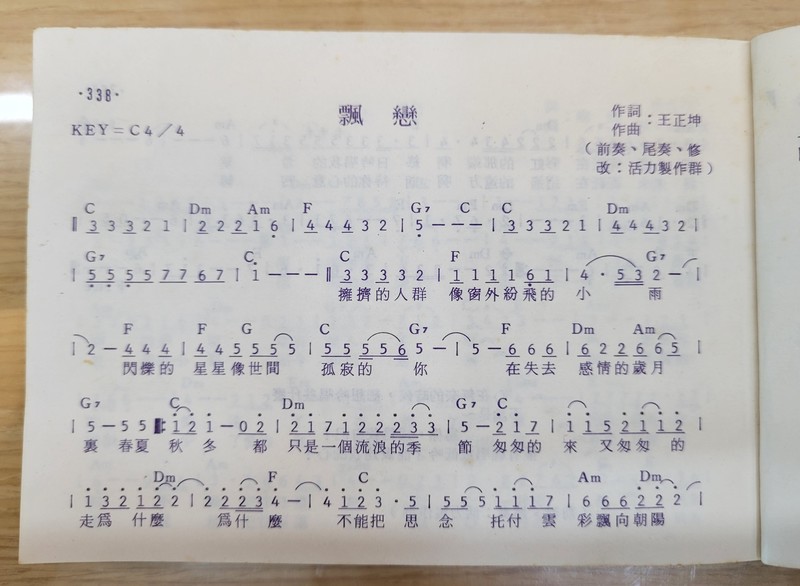 ·338·
飄戀
KEY=C4/4
作詞
作曲：王正坤
（前奏、尾奏、修
改：活力製作群）
C Dm Am F G7 C C Dm
‖ 3 3 3 2 1 | 2 2 2 1 6 | 4 4 4 3 2 | 5 － － － | 3 3 3 2 1 | 4 4 4 3 2 |
G7 C C F G7
| 5 5 5 5 7 7 6 7 | 1 － － － ‖ 3 3 3 3 2 | 1 1 1 1 6 1 | 4 · 5 3 2 － |
擁擠的人群 像窗外紛飛的 小 雨
F F G C G7 F Dm Am
| 2 － 4 4 4 | 4 4 5 5 5 5 | 5 5 5 5 6 5 － | 5 － 6 6 6 | 6 2 2 6 6 5 |
閃爍的 星星像世間 孤寂的 你 在失去 感情的歲月
G7 C Dm G7 C
| 5 － 5 5 ‖: 1 2 1 － 0 2 | 2 1 7 1 2 2 2 3 3 | 5 － 2 1 7 | 1 1 5 2 1 1 2 |
裏 春夏 秋 冬 都 只是一個流浪的季 節 匆匆的 來 又匆匆 的
Dm F C Am Dm
| 1 3 2 1 2 2 | 2 2 2 3 4 － | 4 1 2 3 · 5 | 5 5 5 1 1 1 7 | 6 6 6 2 2 2 |
走爲 什麼 爲什 麼 不能把 思 念 托付 雲 彩飄向朝陽